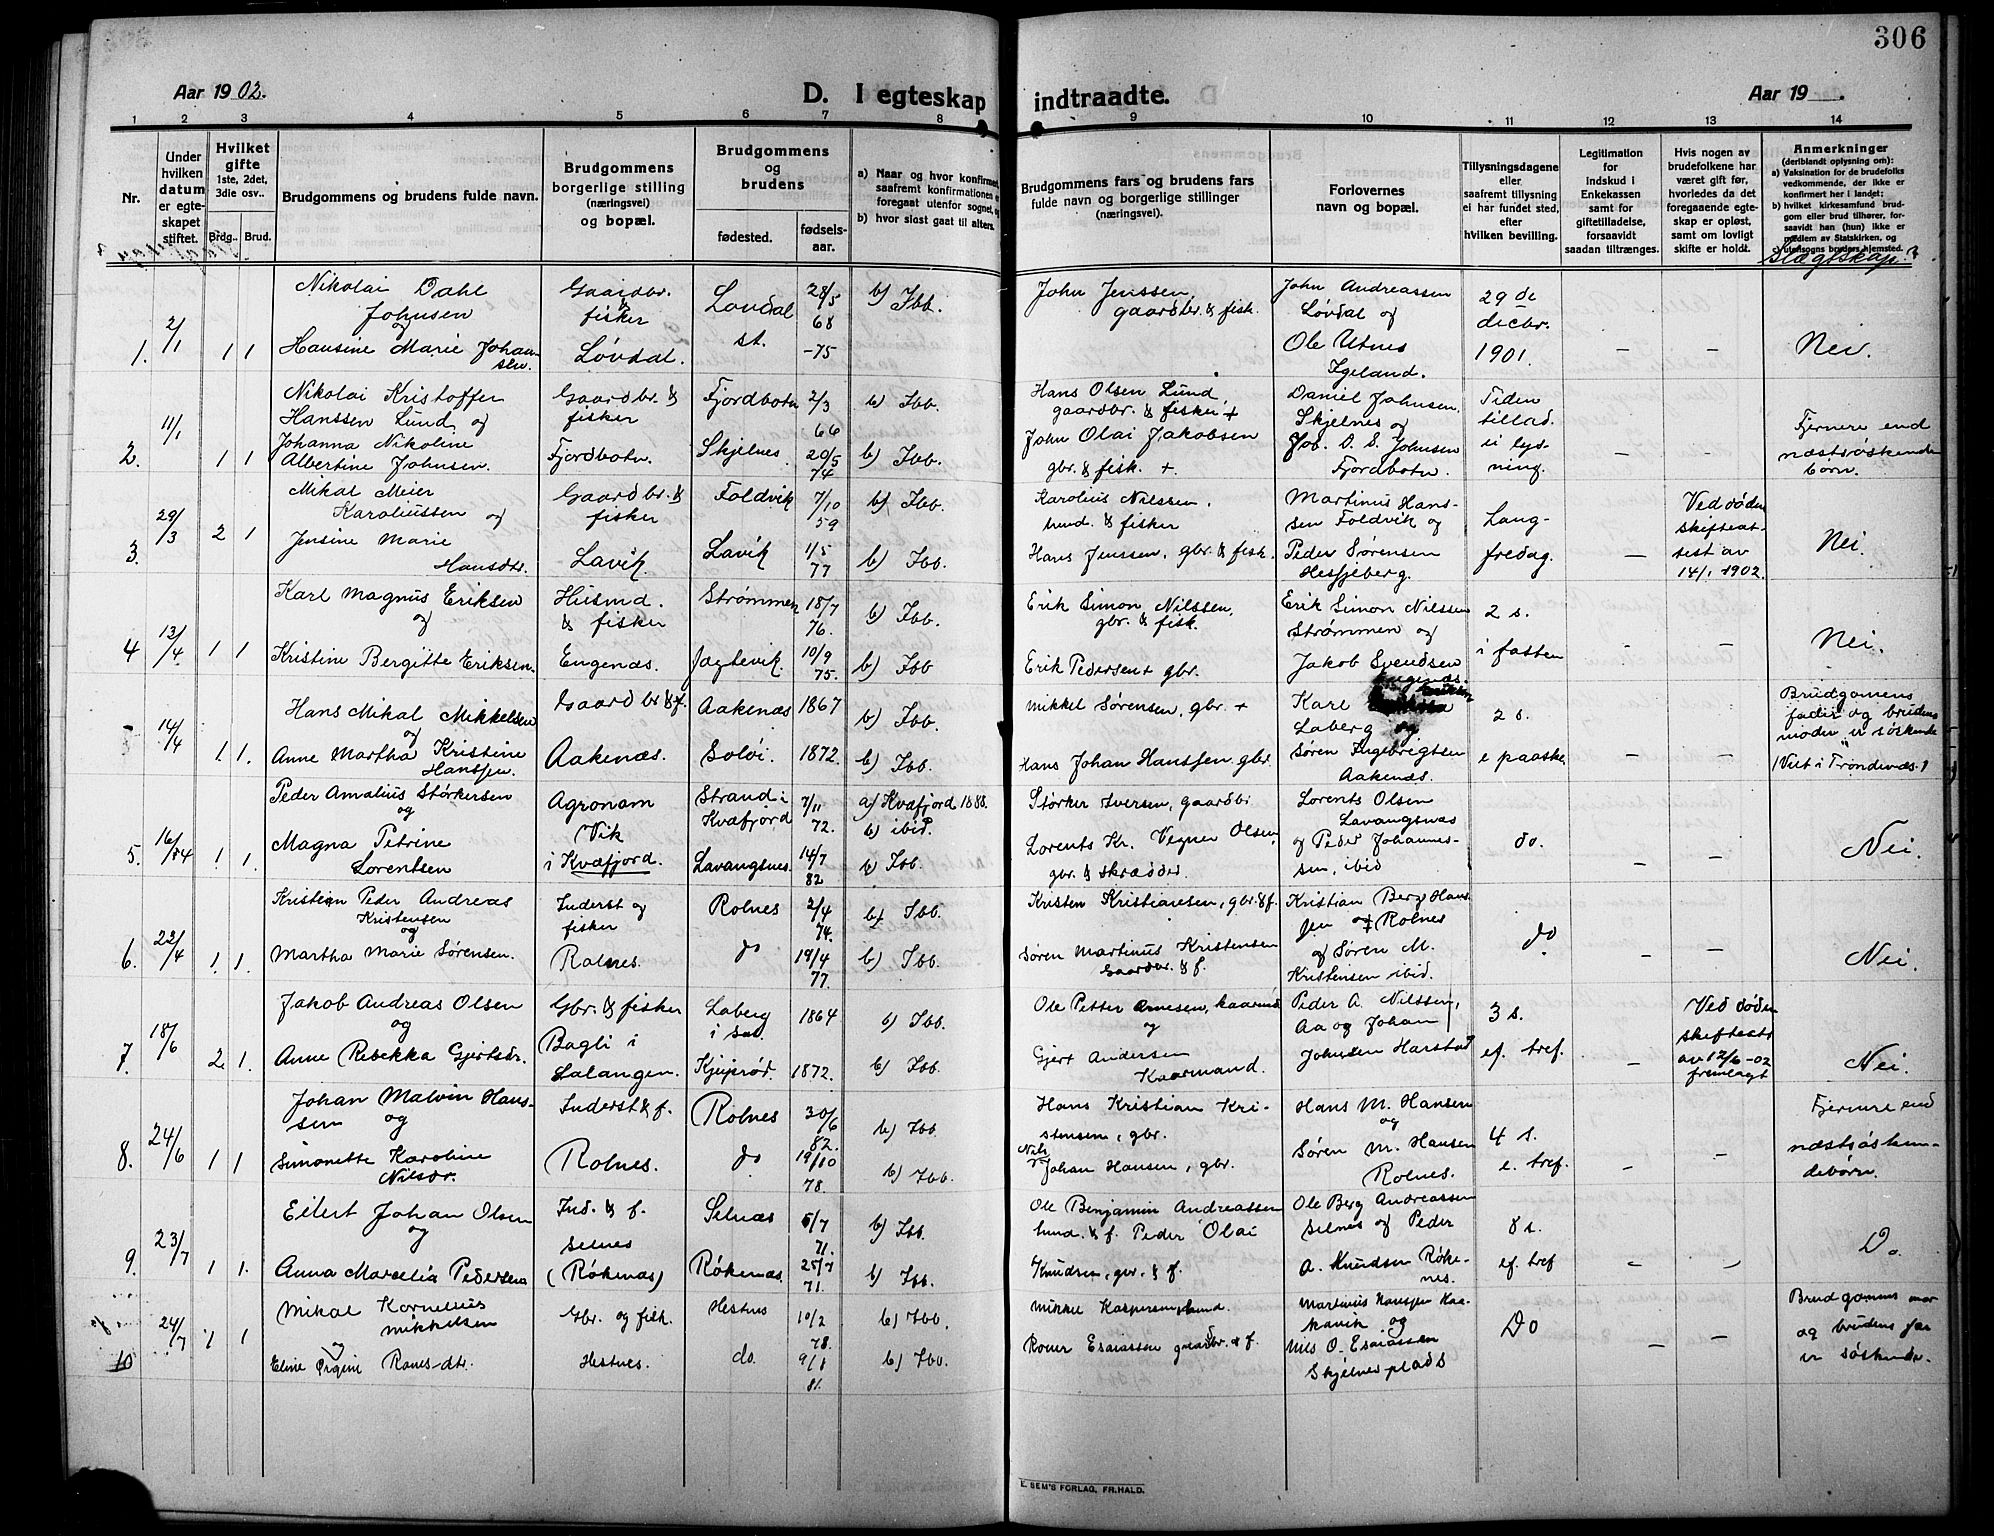 306
Aar 1902.
D. I egteskap indtraadte.
Aar 19 .
1 2 3 4 5 6 7 8 9 10 11 12 13 14
Nr.
Under hvilken datum er egteskapet stiftet.
Hvilket gifte 1ste, 2det, 3die osv..
Brdg.. Brud.
Brudgommens og brudens fulde navn.
Brudgommens borgerlige stilling (næringsvei) og bopæl.
Brudgommens og brudens
fødested.
fødselsaar.
a) Naar og hvor konfirmert, saafremt konfirmationen er foregaat utenfor sognet, og
b) hvor sidst gaat til alters.
Brudgommens fars og brudens fars fulde navn og borgerlige stillinger (næringsvei).
Forlovernes navn og bopæl.
Tillysningsdagene eller saafremt tillysning ei har fundet sted, efter hvilken bevilling.
Legitimation for indskud i Enkekassen samt for giftetilladelse, forsaavidt saadan tiltrænges.
Hvis nogen av brudefolkene har været gift før, hvorledes da det foregaaende egteskap er opløst, samt om lovligt skifte er holdt.
Anmerkninger (deriblandt oplysning om):
a) Vaksination for de brudefolks vedkommende, der ikke er konfirmert her i landet;
b) hvilket kirkesamfund brudgom eller brud tilhører, forsaavidt han (hun) ikke er medlem av Statskirken, og
c) utensogns bruders hjemsted.
Slægtskap?
1. 2/1 1 1
Nikolai Dahl Johnsen og
Hansine Marie Johansen
Gaardbr. & fisker Løvdal.
Løvdal st.
28/5 68
-75
b) Ibb.
John Jenssen, gaardbr. & fisk.
John Andreassen Løvdal og Ole Utnes Igeland.
29 de decbr. 1901.
– –
Nei.
2. 11/1 1 1
Nikolai Kristoffer Hanssen Lund, og
Johanna Nikoline Albertine Johnsen.
Gaardbr. & fisker Fjordbotn.
Fjordbotn 2/3 66 b) Ibb.
Skjelnes 20/5 74 b) Ibb.
Hans Olsen Lund, gaardbr. & fisker +
John Olai Jakobsen gbr. & fisk. +
Daniel Johnsen, Skjelnes og Joh. O. S. Johnsen Fjordbotn.
Tiden tillad. ei lysning.
– –
Fjernere end næstsøskendebørn.
3. 29/3 2 1
Mikal Meier Karoliussen og
Jensine Marie Hansdtr.
Gaardbr. & fisker Lavik.
Foldvik 7/10 59 b) Ibb.
Lavik 1/5 77 b) Ibb.
Karolius Nilssen, & fisker
Hans Jenssen, gbr. & fisk.
Martinus Hanssen Foldvik og Peder Sørensen Hesfjeberg.
Langfredag.
–
Ved døden skifteattest av 14/1 1902.
Nei.
4 13/4 1 1
Karl Magnus Eriksen og
Kristine Bergitte Eriksen.
Husmd. & fisker Engenæs.
Strømmen 18/7 76. b) Ibb.
Jagtevik. 10/9 75. b) Ibb
Erik Simon Nilssen, gbr. & fisk.
Erik Pedersen + gbr.
Erik Simon Nilssen Strømmen og Jakob Svendsen Engenæs.
2 s. i fasten
– –
Nei.
14/4 1 1.
Hans Mikal Mikkelsen og
Anne Martha Kristine Hanssen.
Gaardbr & f. Aakenæs.
Aakenæs 1867 b) Ibb.
Soløi. 1872. b) Ibb.
Mikkel Sørensen, gbr. +
Hans Johan Hanssen gbr.
Karl Eriksen Laberg og Søren Ingebrigtsen Aakenæs.
2 s. e paaske
– –
Brudgomens fader og brudens moder er søskende
(Viet i Trondenæs.)
5. 16/4 1. 1.
Peder Amalius Størkersen og
Magna Petrine Lorentsen
Agronom Vik i Kvæfjord.
Strand i Kvæfjord 7/11 72. a) Kvæfjord 1888. b) ibid.
Lavangsnes. 14/7 82 b) Ibb.
Størker Iversen, gaardbr
Lorents Kr. Vegner Olsen, gbr. & skrædder.
Lorents Olsen Lavangsnæs og Peder Johannessen, ibid
do.
– –
Nei.
6. 22/4 1. 1.
Kristian Peder Andreas Kristensen og
Martha Marie Sørensen.
Inderst og fisker Rolnes.
Rolnes 2/4 74. b) Ibb.
do 19/4 77. b) Ibb.
Kristen Kristiansen, gbr. & f.
Søren Martinus Kristensen Gaardbr. & f.
Kristian Berg Hansen Rolnes og Søren M. Kristensen ibid.
do
– –
Nei.
7. 18/6 2 1.
Jakob Andreas Olsen og
Anne Rebekka Gjertsdr.
Gbr. & fisker Bagli i Salangen.
Laberg i Sal. 1864 b) Ibb.
Kjeiprød. 1872. b) Ibb.
Ole Petter Arnesen, kaarmd og
Gjert Andersen Kaarmand.
Peder A. Nilssen, Aa og Johan Johnsen Harstad
3 s. ef. tref.
–
Ved døden skifteatt. av 12/6-02 fremlagt
Nei.
8. 24/6 1 1
Johan Malvin Hanssen og
Simonette Karoline Nilsdr.
Inderst & f. Rolnes.
Rolnes 30/6 82. b) Ibb.
do 19/10 78. b) Ibb.
Hans Kristian Kristensen, gbr.
Nils Johan Hansen, gbr.
Hans M. Hansen og Søren M. Hansen Rolnes.
4 s. e. tref.
– –
Fjernere end næstsøskendebørn.
9. 23/7 1 1.
Eilert Johan Olsen og
Anna Marcelia Pedersen
Ind. & f. Selnes (Røkenæs)
Selnæs 5/7 71. b) Ibb.
Røkenæs. 25/7 71. b) Ibb.
Ole Benjamin Andreassen & f. Peder Olai Knudsen, gbr. & f.
Ole Berg Andreassen Selnes og Peder A. Knudsen Røkenes.
8 s. ef. tref
– –
Do.
10 24/7 1 1
Mikal Kornelius Mikkelsen og
Eline Ranes-dtr.
Gbr. og fisk. Hestnes.
Hestnes 10/2 78. b) Ibb.
do. 9/1 81. b) Ibb.
Mikkel Kaspersen,
Esaiassen gaardbr. & f.
Martinus Hanssen Kaakavik og Nils O. Esaiassen Skjelnes plads
Do
– –
Brudgomens mor og brudens far er søskende.
E. SEM'S FORLAG, FR.HALD.